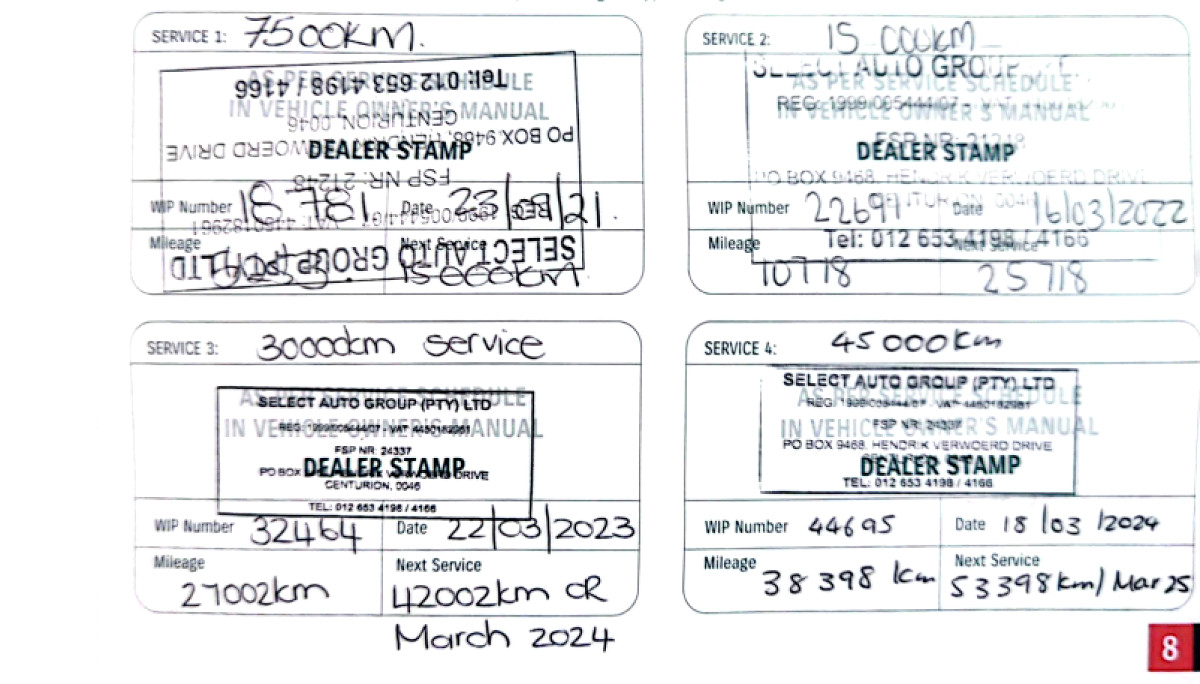 SERVICE 1: 7500KM.
Tel: 012 653 4198 / 4166
AS PER SERVICE SCHEDULE
IN VEHICLE OWNER'S MANUAL
CENTURION 0046
PO BOX 9468, HENDRIK VERWOERD DRIVE
DEALER STAMP
FSP NR: 21248
WIP Number 18781 Date 23/ /21.
Mileage Next Service
SELECT AUTO GROUP (PTY) LTD
15 000km
SERVICE 2: 15 000KM
SELECT AUTO GROUP
AS PER SERVICE SCHEDULE
REG: 1999/005444/07 - VAT
IN VEHICLE OWNER'S MANUAL
FSP NR: 21248
DEALER STAMP
PO BOX 9468, HENDRIK VERWOERD DRIVE
CENTURION, 0046
WIP Number 22691 Date 16/03/2022
Tel: 012 653 4198 / 4166
Mileage Next Service
10718 25718
SERVICE 3: 30000km service
AS PER SERVICE SCHEDULE
SELECT AUTO GROUP (PTY) LTD
IN VEHICLE OWNER'S MANUAL
REG: 1999/005444/07 - VAT 4480182961
FSP NR: 24337
DEALER STAMP
PO BOX 9468, HENDRIK VERWOERD DRIVE
CENTURION, 0046
TEL: 012 653 4198 / 4166
WIP Number 32464 Date 22/03/2023
Mileage Next Service
27002km 42002km OR
March 2024
SERVICE 4: 45000km
SELECT AUTO GROUP (PTY) LTD
AS PER SERVICE SCHEDULE
REG: 1999/005444/07 - VAT 4480182961
FSP NR: 24337
IN VEHICLE OWNER'S MANUAL
PO BOX 9468, HENDRIK VERWOERD DRIVE
CENTURION, 0046
DEALER STAMP
TEL: 012 653 4198 / 4166
WIP Number 44695 Date 18/03/2024
Mileage Next Service
38 398 km 53398km/Mar 25
8